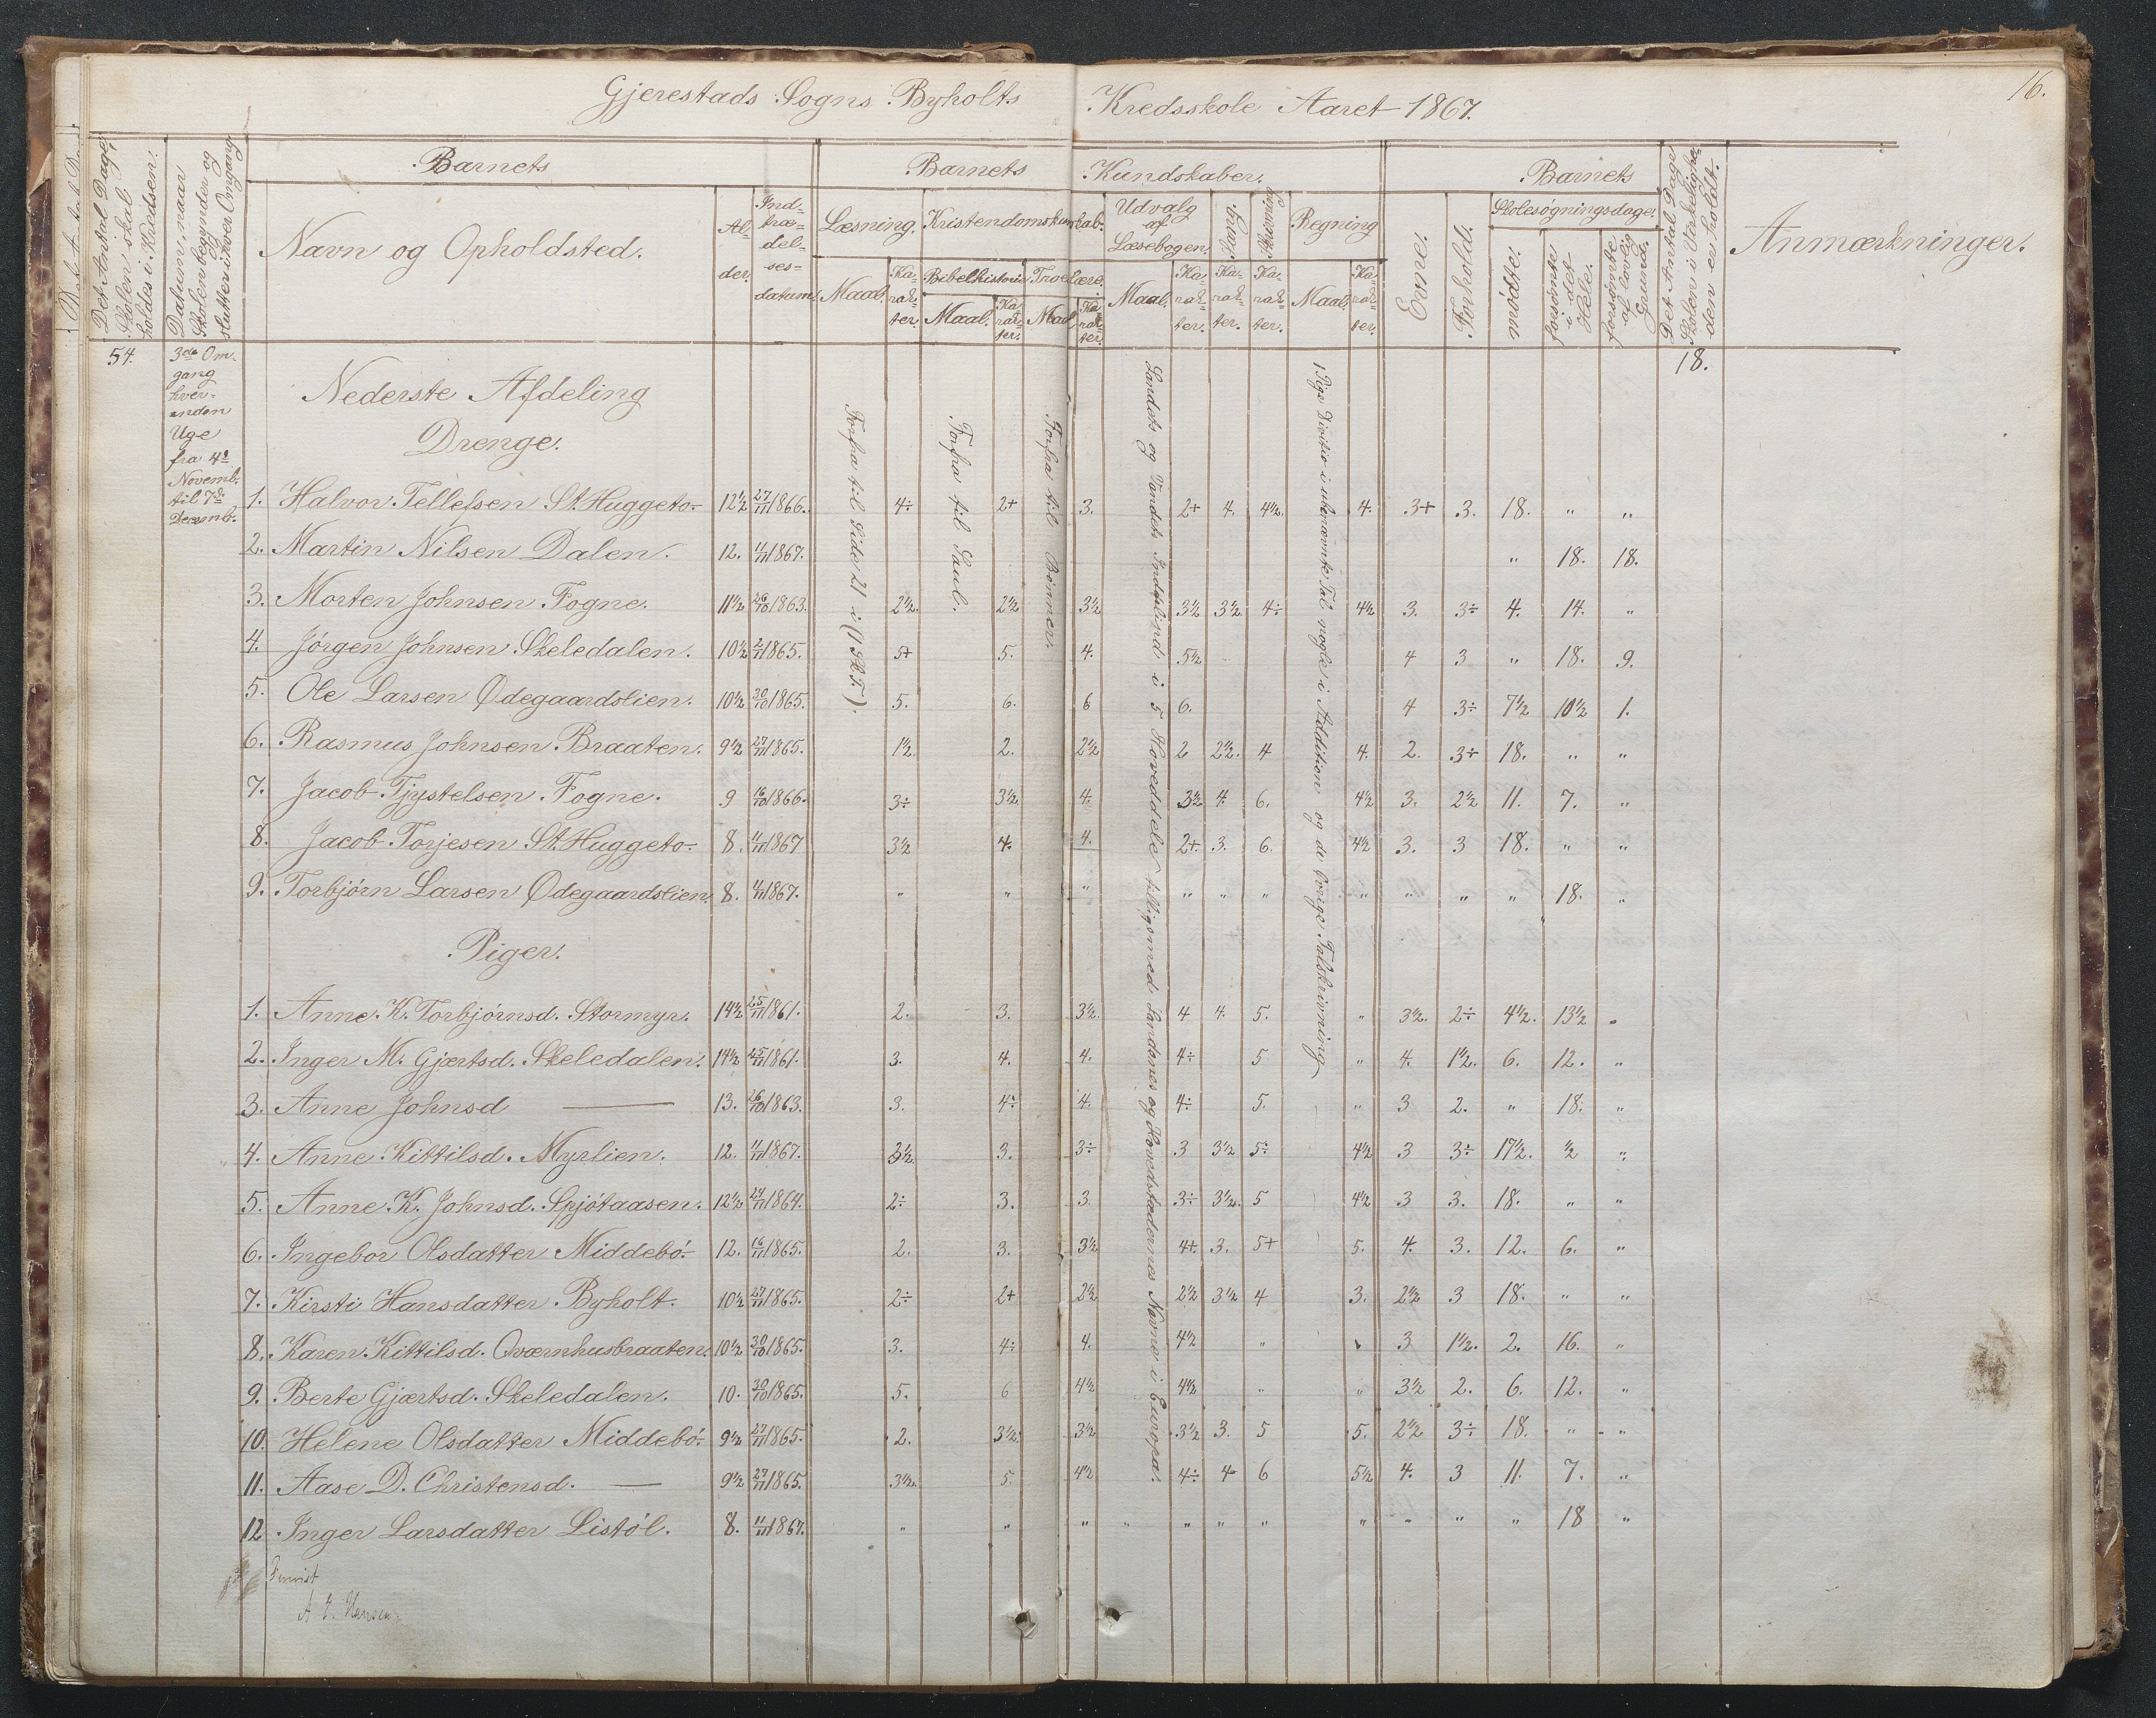 16.
Gjerestads Sogns Byholts Kredsskole Aaret 1867.
Det Antal Dage, Skolen skal holdes i Kredsen.
Datum, naar Skolen begynder og slutter i hver Omgang
Barnets
Navn og Opholdsted.
Al-der.
Ind-træ-del-ses-datum.
Barnets Kundskaber.
Læsning.
Maal.
Ka-rak-ter.
Kristendomskundskab.
Bibelhistorie
Maal.
Ka-rak-ter.
Troeslære.
Maal.
Ka-rak-ter.
Udvalg af Læsebogen.
Maal.
Ka-rak-ter.
Sang.
Ka-rak-ter.
Skrivning
Ka-rak-ter.
Regning
Maal.
Ka-rak-ter.
Barnets
Evne.
Forhold.
Skolesøgningsdage.
mødte.
forsømte i det Hele.
forsømte af lovlig Grund.
Det Antal Dage Skolen i Virkeligheden er holdt.
Anmærkninger.
54.
3die Om-
gang
hver-
anden
Uge
fra 4de
Novemb.
til 7de
Decemb.
18.
Nederste Afdeling
Drenge.
Forfra til Side 21 i (1 Sk.T.).
Forfra til Saul.
Forfra til Bønnen.
Landets og Vandets Inddeling i 5 Hoveddele tilligemed Landenes og Hovedstædernes Navne i Europa.
1 Pige Divitio i ubenævnte Tal nogle i Addition og de øvrige Talskrivning
1. Halvor Tellefsen St. Huggeto. 12½ 27/11 1866. 4÷ 2+ 3. 2+ 4. 4½. 4. 3+ 3. 18. " "
2. Martin Nilsen Dalen. 12. 4/11 1867. " 18. 18.
3. Morten Johnsen Fogne. 11½ 26/10 1863. 2½. 2½ 3½ 3½ 3½. 4÷ 4½ 3. 3÷ 4. 14. "
4. Jørgen Johnsen Skeledalen. 10½ 2/11 1865. 5+ 5. 4. 5½ 4 3 " 18. 9.
5. Ole Larsen Ødegaardslien. 10½ 30/10 1865. 5. 6. 6 6. 4 3÷ 7½ 10½ 1.
6. Rasmus Johnsen Braaten. 9½ 27/11 1865. 1½. 2. 2½ 2 2½. 4 4. 2. 3+ 18. " "
7. Jacob Tjystelsen Fogne. 9 16/10 1866. 3÷ 3½ 4. 3½ 4. 6. 4½ 3. 2½ 11. 7. "
8. Jacob Torjesen St. Huggeto. 8. 4/11 1867 3½ 4. 4. 2+. 3. 6. 4½ 3. 3 18. " "
9. Torbjørn Larsen Ødegaardslien 8. 4/11 1867. " " " " " " " " " " 18. "
Piger.
1. Anne K. Torbjørnsd. Stormyr. 14½ 25/11 1861. 2. 3. 3½. 4 4. 5. " 3½. 2÷ 4½. 13½ "
2. Inger M. Gjærtsd. Skeledalen. 14½ 25/11 1861. 3. 4. 4. 4÷ 5 " 4. 1½. 6. 12. "
3. Anne Johnsd — 13. 26/10 1863. 3. 4÷ 4. 4÷ 5. " 3 2. " 18. "
4. Anne Kittilsd. Myrlien. 12. 4/11 1867. 3½. 3. 3÷ 3 3½ 5÷ 4½ 3 3÷ 17½. ½ "
5. Anne K. Johnsd. Spjøtaasen. 12½ 24/11 1864. 2÷ 3. 3. 3÷ 3½. 5 4½ 3 3. 18. " "
6. Ingebor Olsdatter Middebø. 12. 16/11 1865. 2. 3. 3½ 4+. 3. 5+ 5. 4. 3. 12. 6. "
7. Kirsti Hansdatter Byholt. 10½ 27/11 1865. 2÷ 2+ 2½ 2½ 3½ 4 3. 2½ 3 18. " "
8. Karen Kittilsd. Qværnhusbraaten. 10½ 30/10 1865. 3. 4÷ 4. 4½ " " 3 1½. 2. 16. "
9. Berte Gjærtsd. Skeledalen. 10. 30/10 1865. 5. 6 4½ 4½ " " 3½ 2. 6. 12. "
10. Helene Olsdatter Middebø. 9½ 27/11 1865. 2. 3½ 3½ 3½ 3. 5 5. 2½ 3÷ 18. " "
11. Aase D. Christensd. — 9½ 27/11 1865. 3½. 5. 4½ 4÷ 4 6 5½ 4. 3 11. 7. "
12 Inger Larsdatter Listøl. 8. 4/11 1867. " " " " " " " " " " " 18 "
A. Hansen